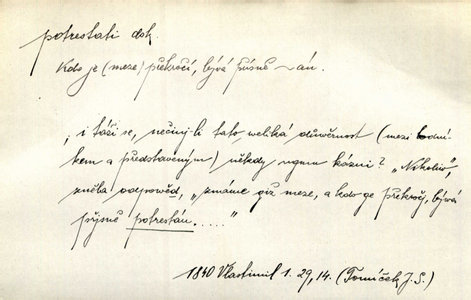 potrestati dok.
Kdo je (meze) překročí, bývá přísně ~án.
, i táži se, nečiní-li tato weliká důwěrnost (mezi bední-
kem a představeným) někdy ugmu kázni? „Nikoliw“,
zněla odpowěd, „známe giž meze, a kdo ge překročj, býwá
přjsně potrestán....."
1840 Vlastimil 1. 29, 14. (Tomíček J. S.)